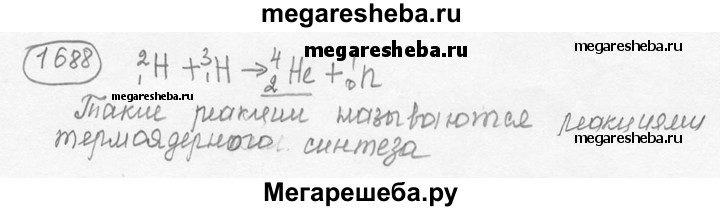 megaresheba.ru
1688 ²₁H + ³₁H → ⁴₂He + ¹₀n
megaresheba.ru
megaresheba.ru
Такие реакции называются реакциями
термоядерного синтеза
Мегарешеба.ру